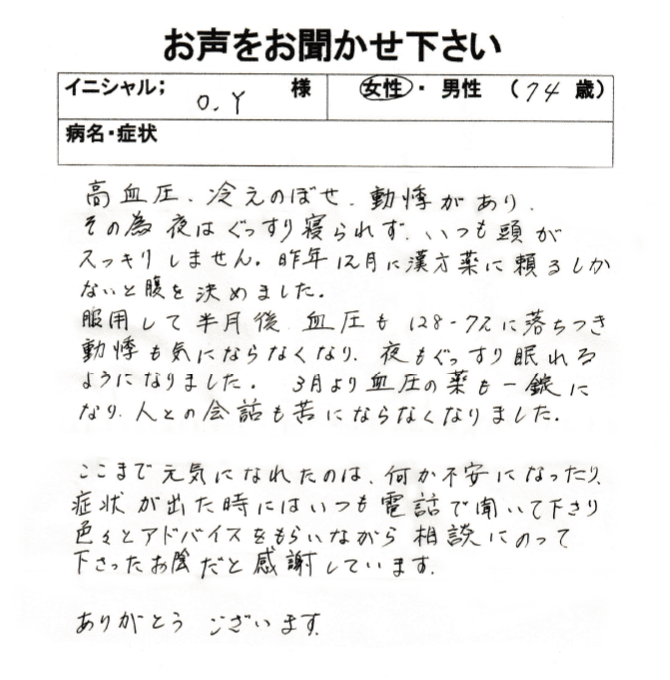 お声をお聞かせ下さい
イニシャル; O.Y 様 女性・男性 (74歳)
病名・症状
高血圧、冷えのぼせ、動悸があり、
その為夜はぐっすり寝られず、いつも頭が
スッキリしません。昨年12月に漢方薬に頼るしか
ないと腹を決めました。
服用して半月後、血圧も128-72に落ちつき
動悸も気にならなくなり、夜もぐっすり眠れる
ようになりました。3月より血圧の薬も一錠に
なり、人との会話も苦にならなくなりました。
ここまで元気になれたのは、何か不安になったり、
症状が出た時にはいつも電話で聞いて下さり
色々とアドバイスをもらいながら相談にのって
下さったお陰だと感謝しています。
ありがとうございます。